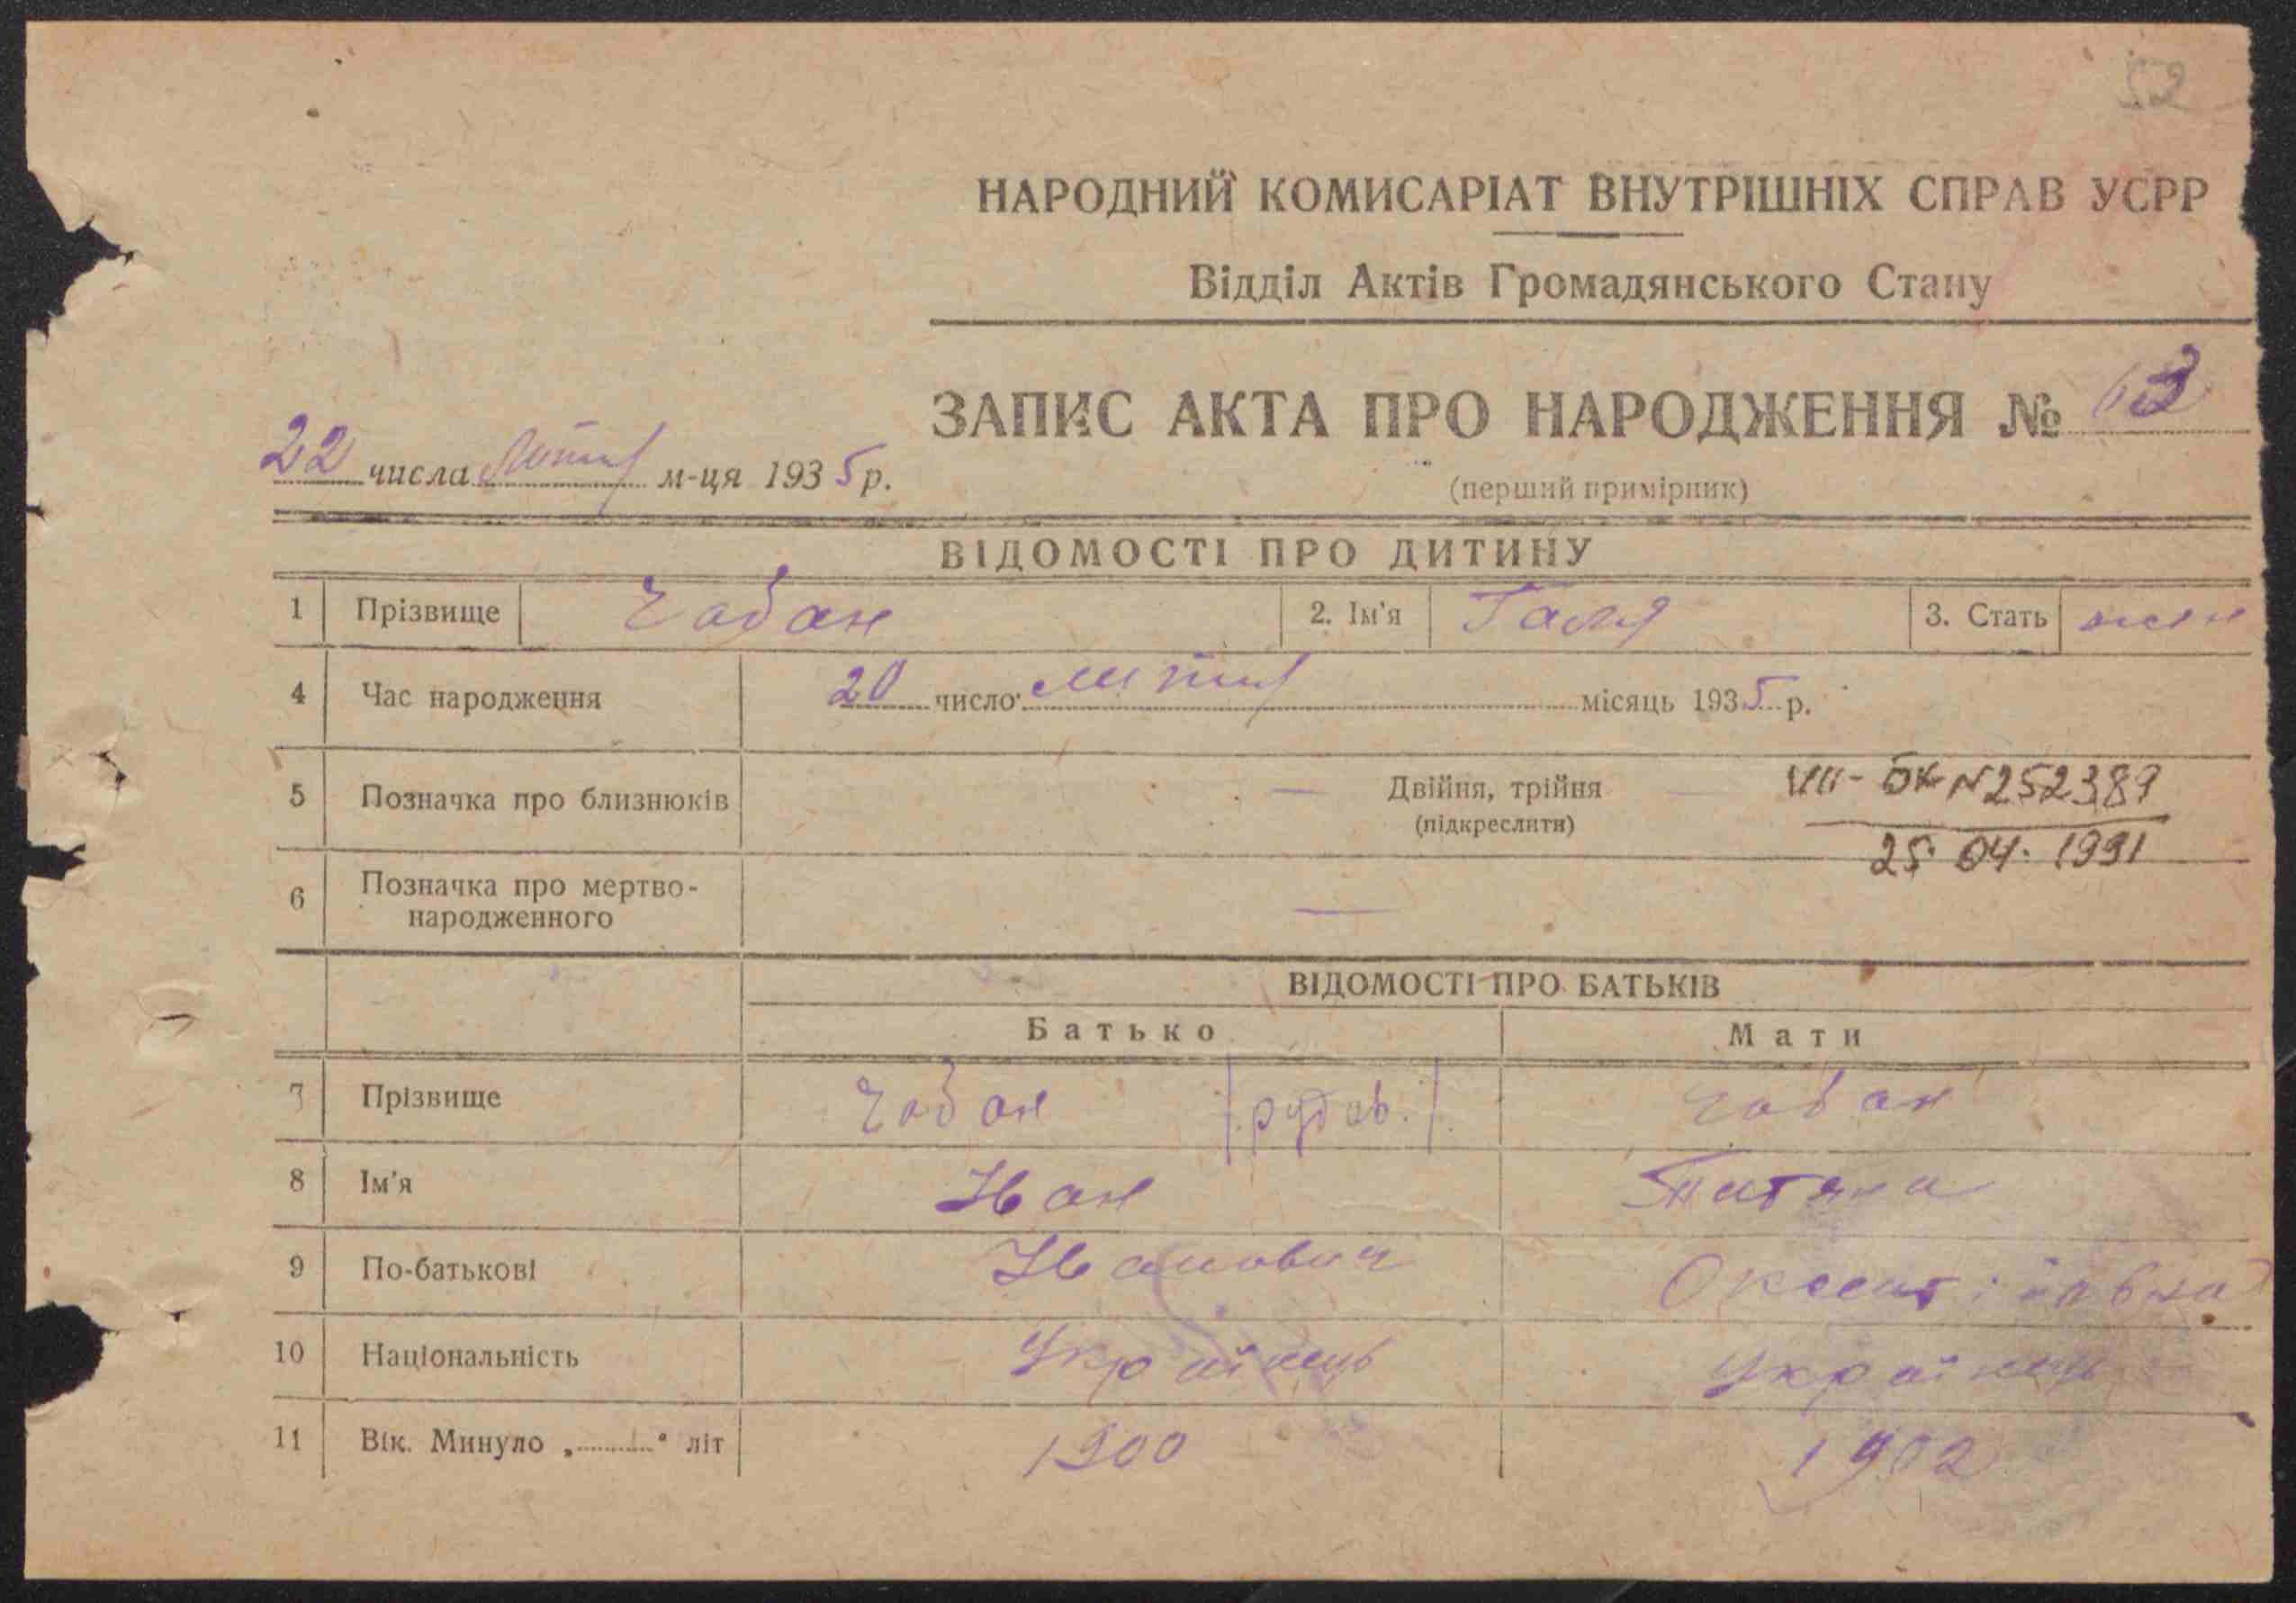 52
НАРОДНИЙ КОМИСАРІАТ ВНУТРІШНІХ СПРАВ УСРР
Відділ Актів Громадянського Стану
ЗАПИС АКТА ПРО НАРОДЖЕННЯ №
22 числа м-ця 1935 р.
(перший примірник)
ВІДОМОСТІ ПРО ДИТИНУ
1 Прізвище Чабан 2. Ім'я Галя 3. Стать жін
4 Час народження 20 число місяць 1935 р.
5 Позначка про близнюків — Двійня, трійня —
(підкреслити)
VIII-БК N252387
25.04.1991
6 Позначка про мертво-
народженного —
ВІДОМОСТІ ПРО БАТЬКІВ
Батько Мати
7 Прізвище Чабан Чабан
8 Ім'я Іван Татяна
9 По-батькові Іванович
10 Національність Українець Українець
11 Вік. Минуло „..........“ літ 1900 1902